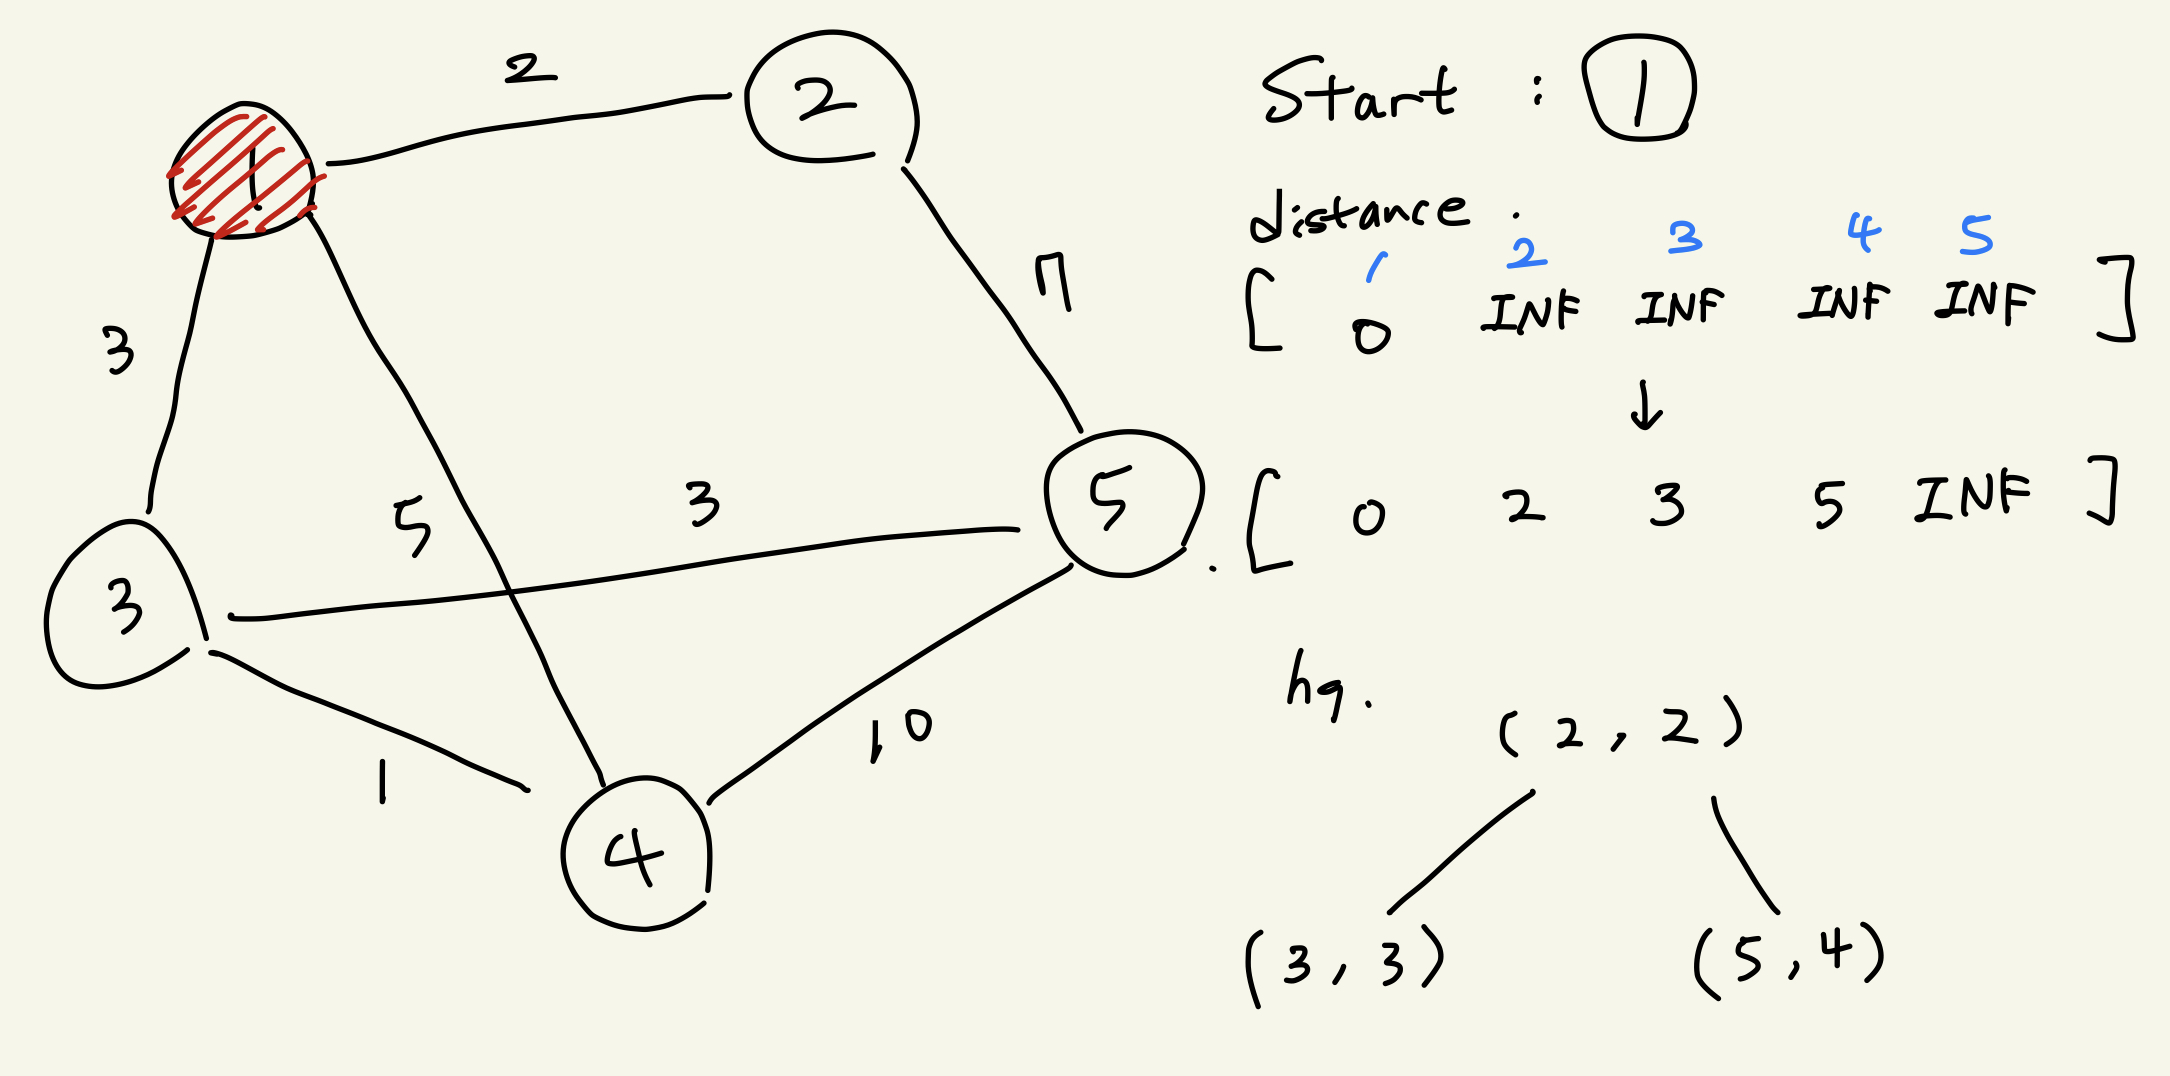 2
2
1
7
3
5
3
5
3
1
10
4
Start : 1
distance :
1 2 3 4 5
[ 0 INF INF INF INF ]
↓
[ 0 2 3 5 INF ]
hq.
(2, 2)
(3, 3) (5, 4)